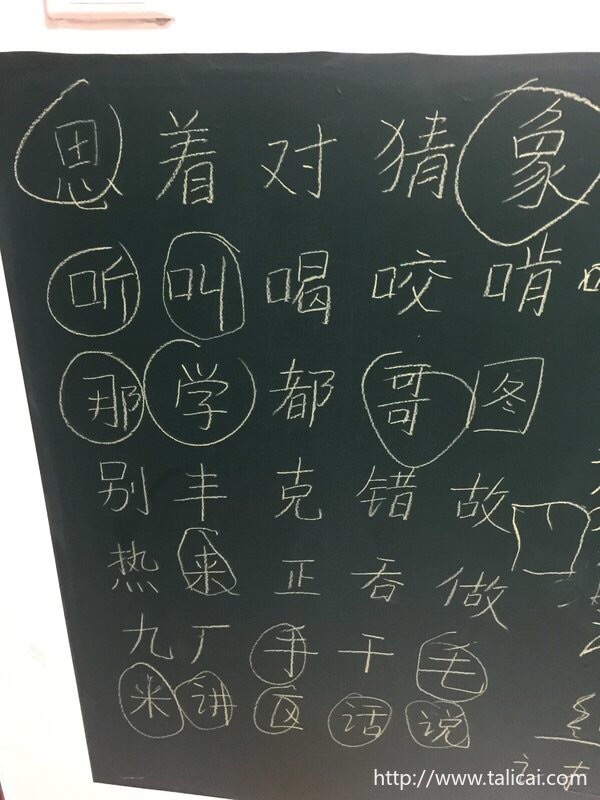 思着对猜象
听叫喝咬啃
那学都哥图
别丰克错故
热来正吞做
九厂手干毛
米讲区话说
http://www.talicai.com